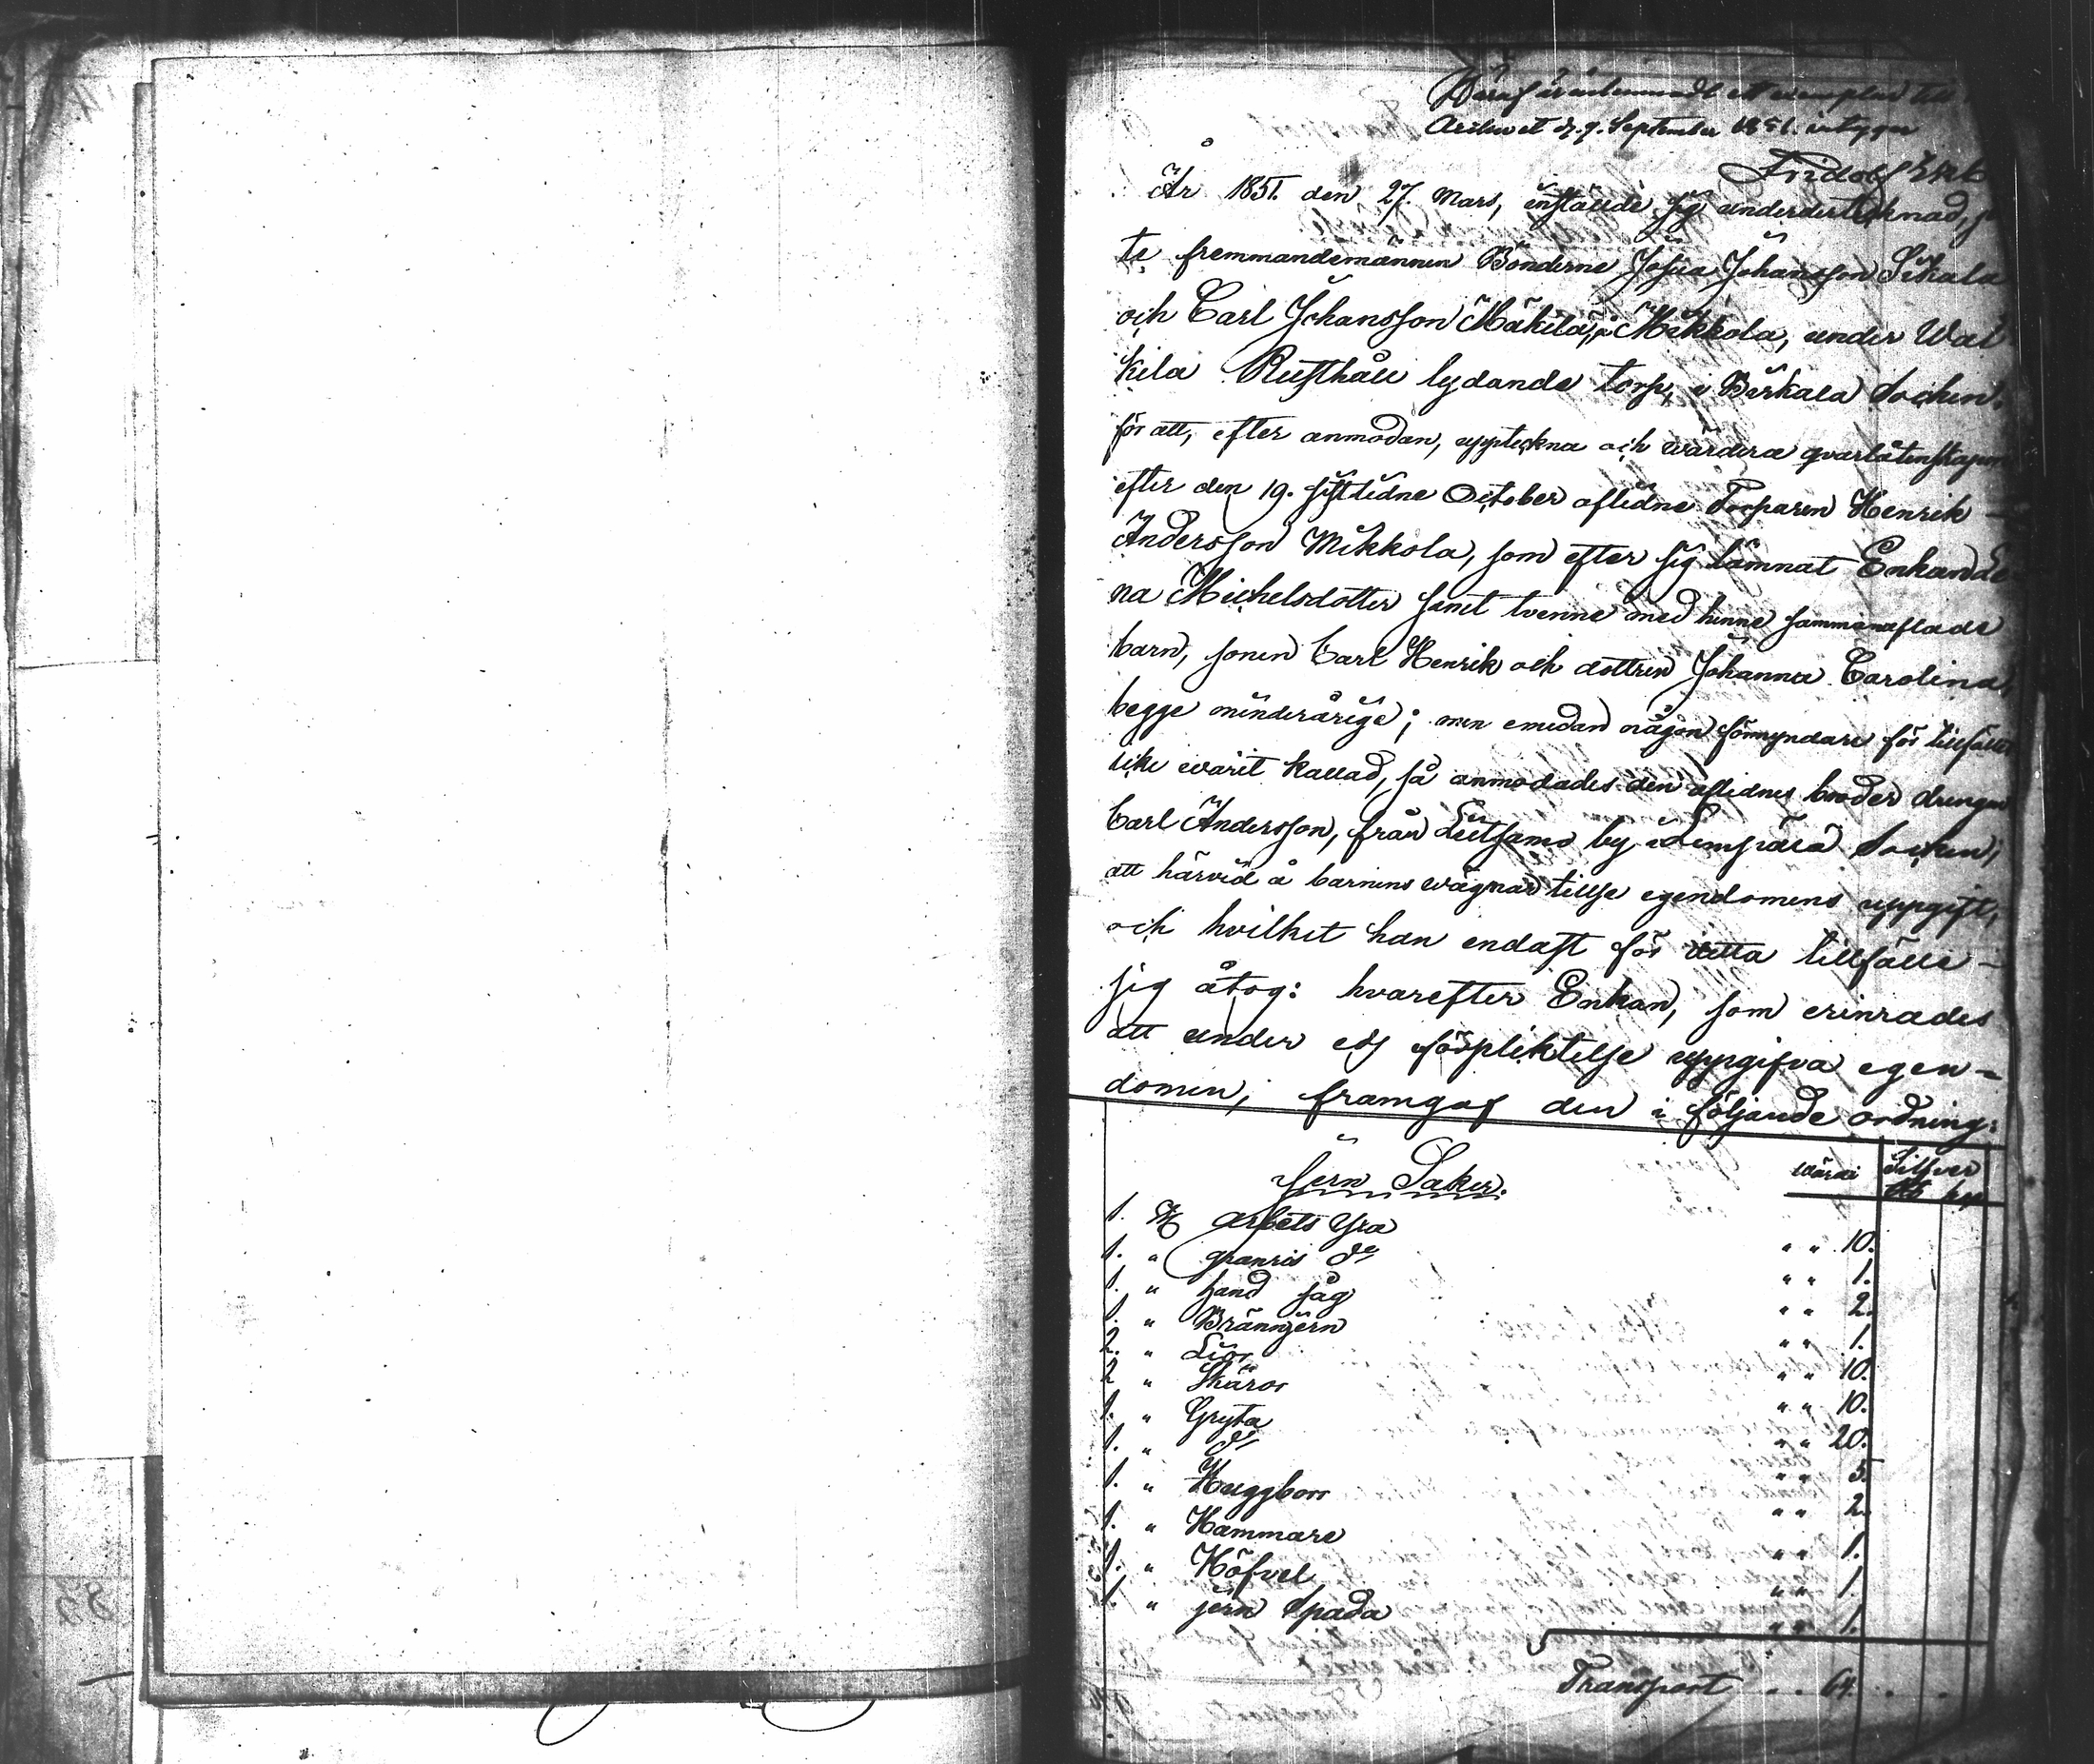 Häraf är aulemnadt ett exemplar till
Archivet d. 9. September 1851. intygar
Fridolf
År 1851. den 27. Mars, inställde sig undertecknad,
te fremmandemännen Bönderne Josua Johansson Sikala
och Carl Johansson Mäkilä, i Mikkola, under Wal
kila Rusthåll lydande torp, i Birkala Socken,
för att, efter anmodan, uppteckna och wärdera qvarlåtenskapen
efter den 19. sistlidne October aflidne Torparen Henrik –
Andersson Mikkola, som efter sig lämnat Enkan Le
na Michelsdotter samt tvenne med henne sammanaflade
barn, sonen Carl Henrik och dottren Johanna Carolina,
begge minderårige; men emedan någon förmyndare för tillfället
icke warit kallad, så anmodades den aflidnes broder drengen
Carl Andersson, från Lietsamo by i Lempälä Socken,
att härvid å barnens wägnar tillse egendomens uppgift,
och hvilket han endast för detta tillfälle –
sig åtog: hvarefter Enkan, som erinrades
att under eds förpliktelse uppgifva egen=
domen, framgaf den i följande ordning:
Jern Saker. wärde Silfver
Rb kop
1. St arbets Yxa " " 10.
1. " granris do " " 1.
1. " hand såg " " 2.
1. " Brännjern " " 1.
2. " Liar " " 10.
2 " Skäror " " 10.
1. " Gryta " " 20.
1. " do " " 5.
1. " Huggborr " " 2.
1. " Hammare " " 1.
1. " Höfvel " " 1.
1. " jern Spada " " 1.
Transport " " 64.